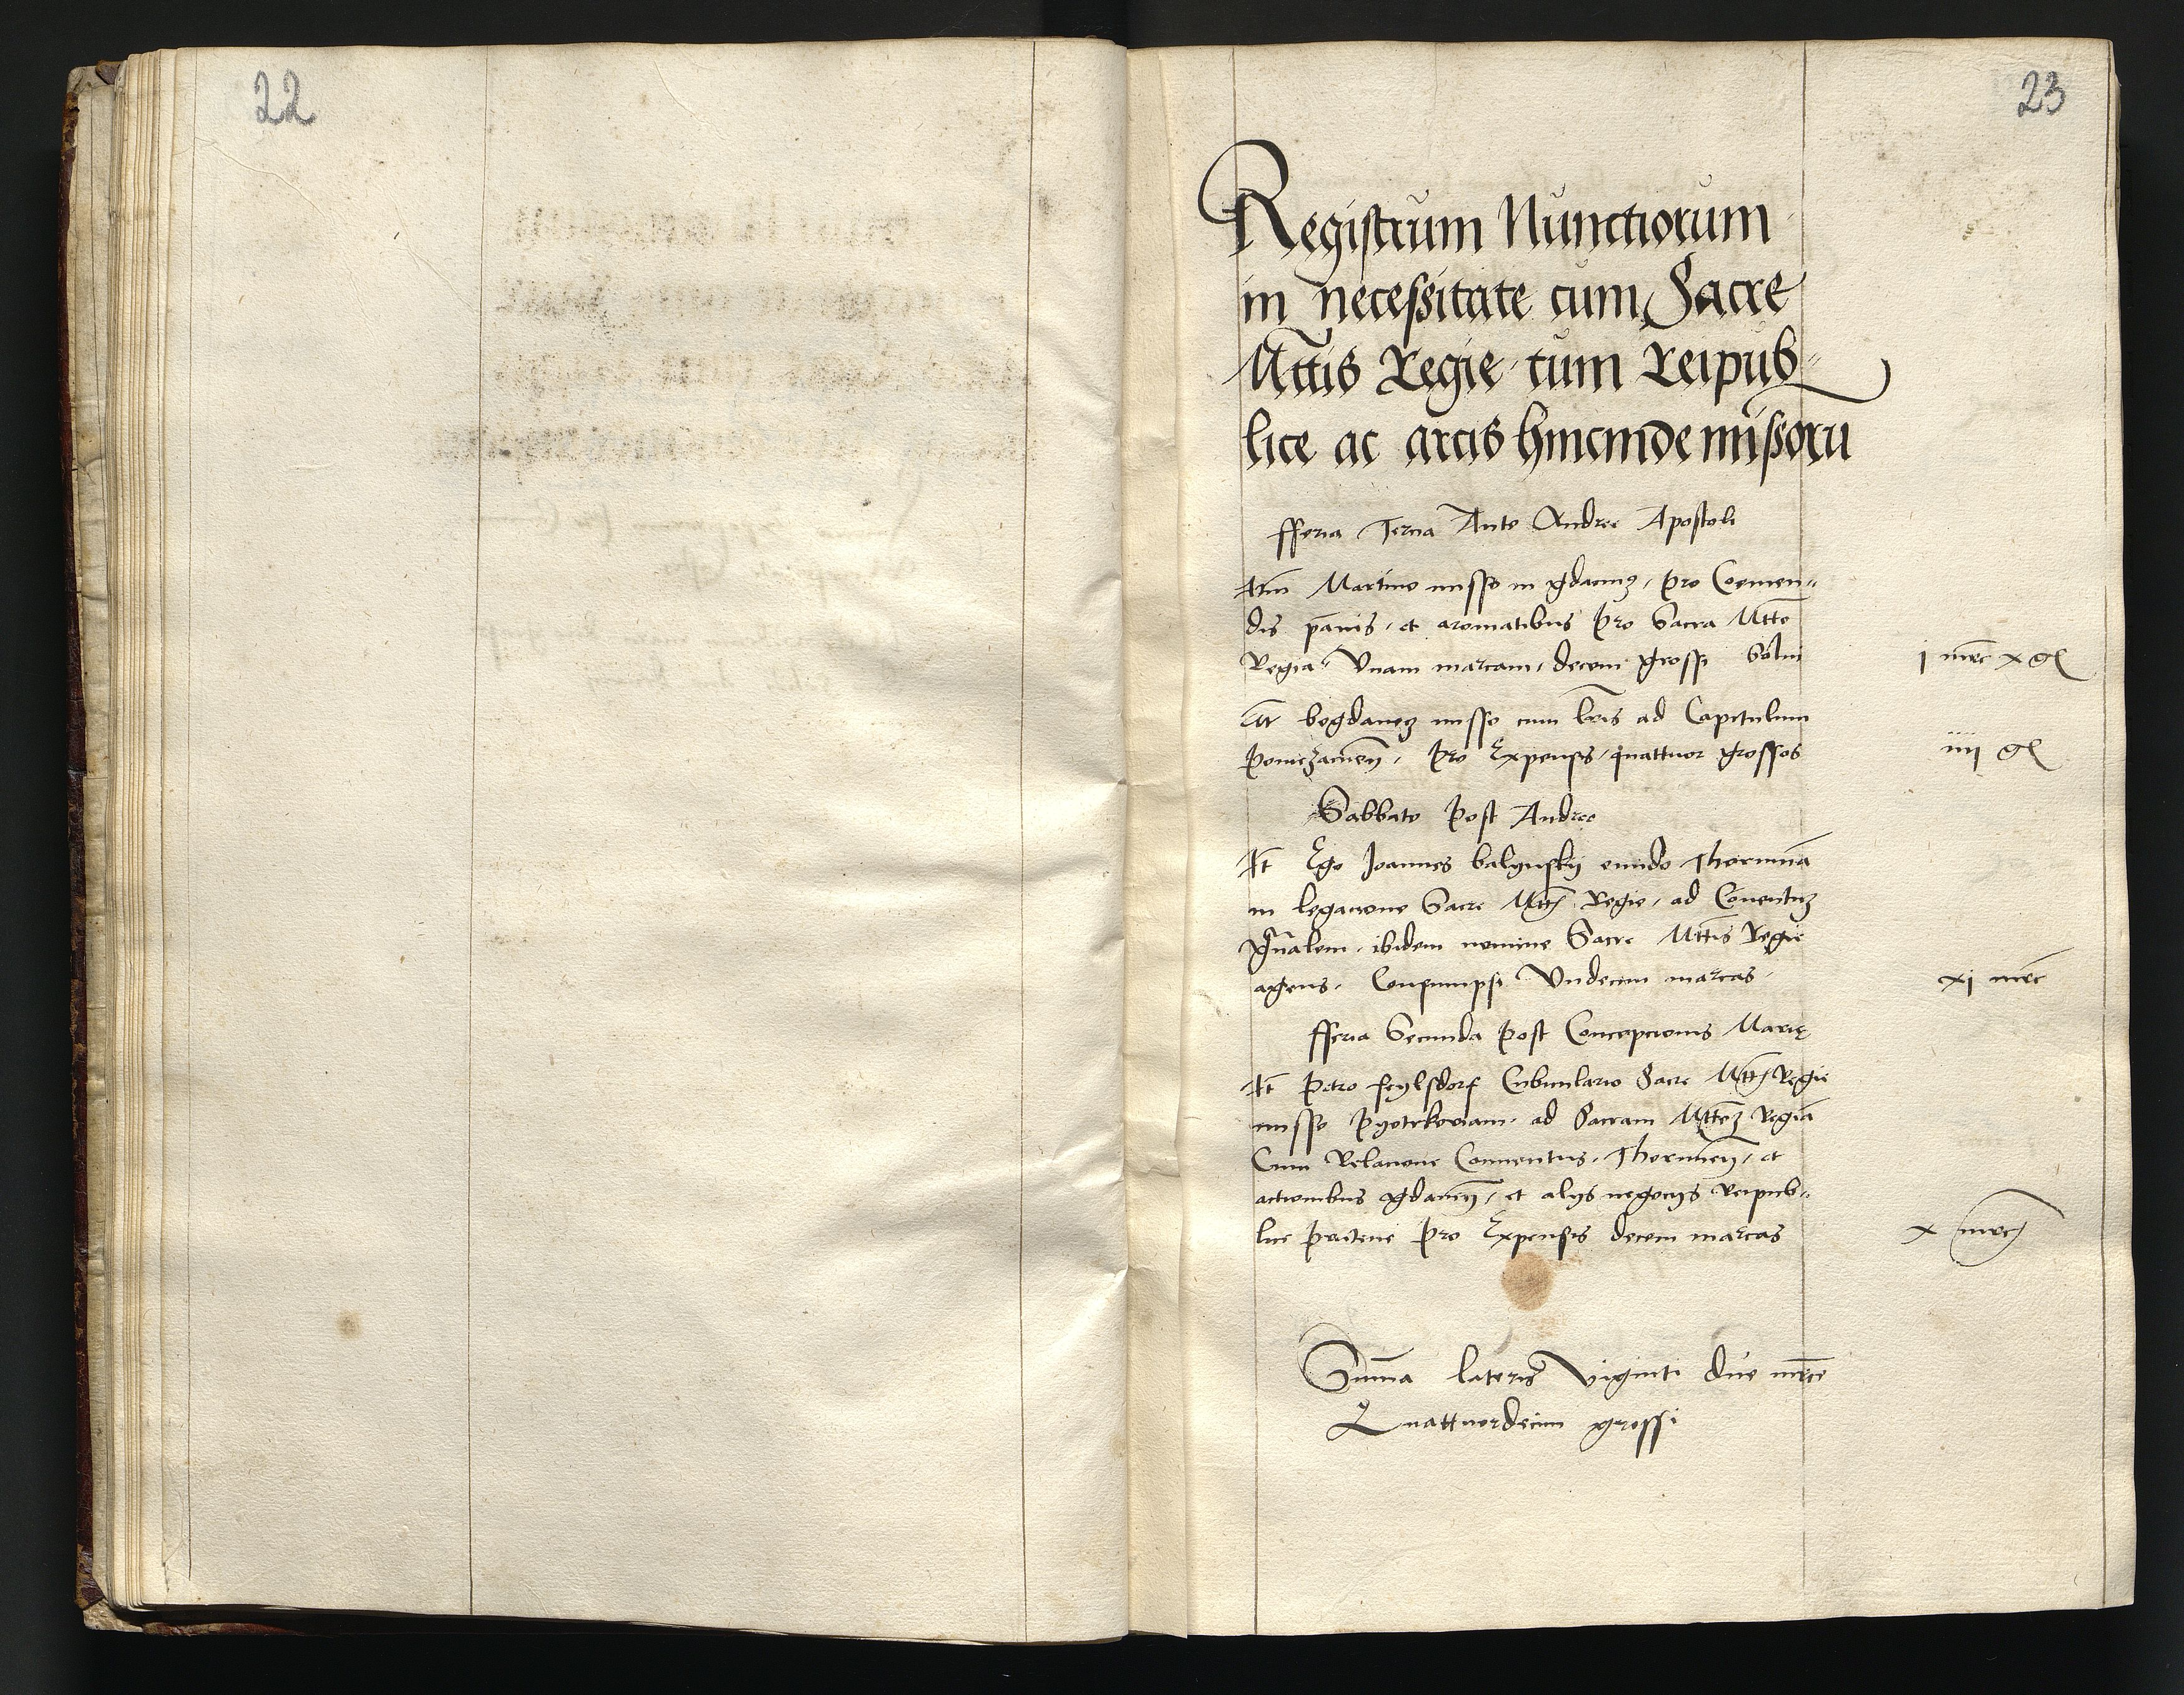 22
23
Registrum Nunctiorum
in necessitate cum Sacre
Mttis Regie tum Reipub-
lice ac arcis hincinde missoru
fferia Tercia Ante Andree Apostoli
Itm Martino misso in gdanㄗ pro Coemen-
dis pānis et aromatibus pro Sacra Mtte
Regia Vnam marcam, decem grossi Solui
j mrc x gͬ
It bogdanecz misso cum lris ad Capitulum
pomezanien, pro Expensis, quattuor grossos
iiij gͬ
Sabbato post Andree
It Ego Joannes balynsky eundo Thoruniā
in legacione Sacre Mttis Regie, ad Conentuʒ
gn̄alem, ibidem nomine Sacre Mttis Regie
agens, Consumpsi Vndecim marcas
xj mrc
fferia Secunda post Concepcionis Marie
It petro feylsdorf Cubiculario Sacre Mttis Regie
misso pyotrkouiam, ad Sacram Mtteʒ Regiā
Cum Relacione Conuentus, Thorunien, et
actionibus gdanen, et alijs negocijs Reipub-
lice pro Expensis decem marcas
x mrc
Sum̄a lateris viginti due mrce
Quattuordecim grossi